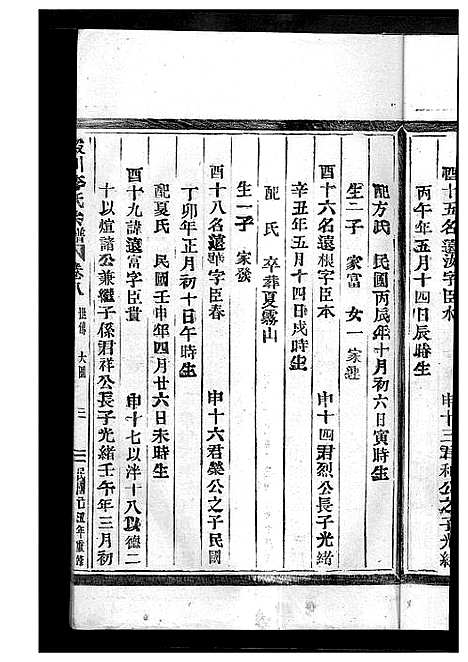 酉十五名遠波字臣木 申十三君和公之子光緒
丙午年五月十四日辰時生
配方氏 民國丙辰年十月初六日寅時生
生二子 家富 女一家蓮
酉十六名遠根字臣本 申十四君烈公長子光緒
辛丑年五月十四日戌時生
配 氏 卒葬夏霧山
生一子 家發
酉十八名遠華字臣春 申十六君榮公之子民國
丁卯年正月初十日午時生
配夏氏 民國壬申年四月廿六日未時生
酉十九諱遠富字臣貴 申十七以泮十八以德二
十以煊諸公兼繼子係君祥公長子光緒壬午年三月初
川李氏宗譜 卷八 大園 三 民國 丑年重修